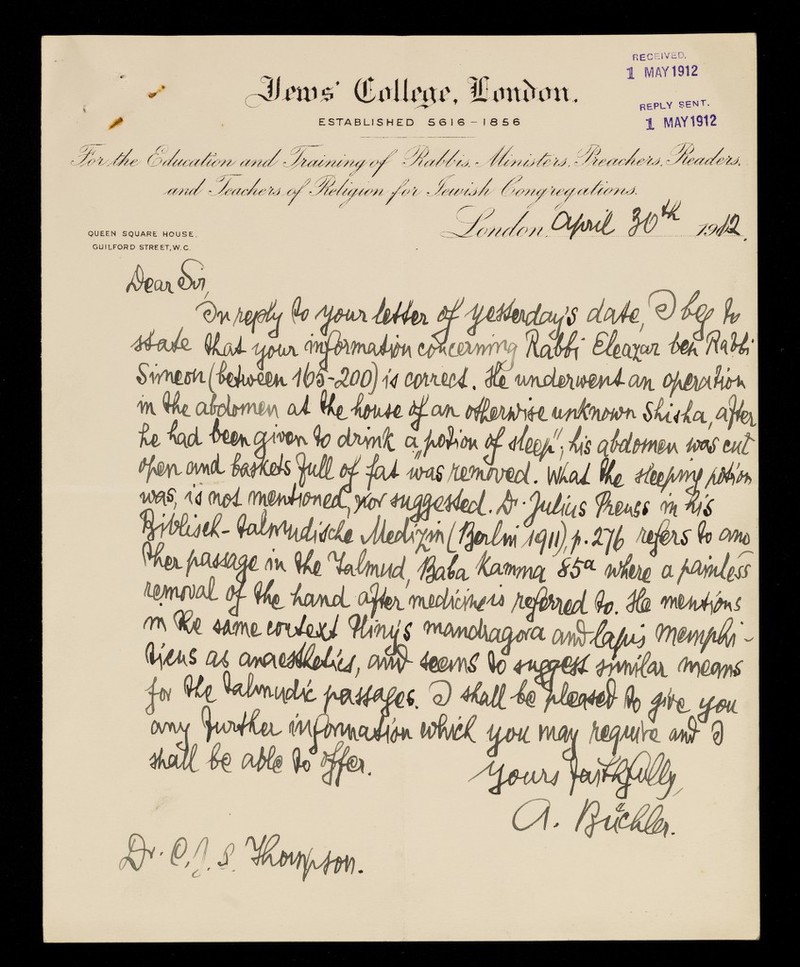 RECEIVED.
1 MAY 1912
REPLY SENT.
1 MAY 1912
Jews' College, London.
ESTABLISHED 5616-1856
For the Education and Training of Rabbis, Ministers, Preachers, Readers,
and Teachers of Religion for Jewish Congregations.
London, April 30th 1912.
QUEEN SQUARE HOUSE.
GUILFORD STREET, W.C.
Dear Sir,
In reply to your letter of yesterday's date, I beg to
state that your information concerning Rabbi Eleazar ben Rabbi
Simeon (between 165-200) is correct. He underwent an operation
in the abdomen at the house of an otherwise unknown Shisha, after
he had been given to drink a "potion of sleep"; his abdomen was cut
open and baskets full of fat was removed. What the sleeping potion
was, is not mentioned, nor suggested. Dr. Julius Preuss in his
Biblisch-talmudische Medizin (Berlin 1911), p. 276 refers to ano
ther passage in the Talmud, Baba Kamma 85a where a painless
removal of the hand after medicine is referred to. He mentions
in the same context Pliny's mandragora and lapis memphi-
ticus as anaesthetics, and seems to suggest similar means
for the talmudic passages. I shall be pleased to give you
any further information which you may require and I
shall be able to offer.
Yours faithfully,
A. Büchler.
Dr. C. J. S. Thompson.